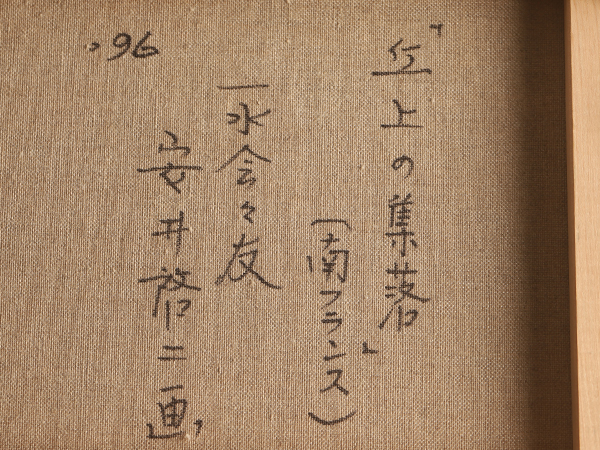 「丘上の集落」
(南フランス)
一水会々友
安井啓二画,
'96